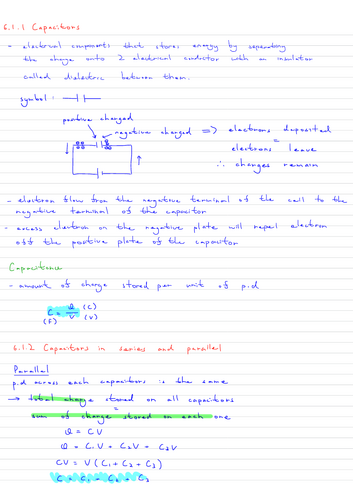 6.1.1 Capacitors
- electrical components that stores energy by seperating
the charge onto 2 electrical conductor with an insulator
called dielectric between them.
symbol :
positive changed
negative changed => electrons deposited
=
electrons leave
∴ changes remain
- electron flow from the negative terminal of the cell to the
negative terminal of the capacitor
- excess electron on the negative plate will repel electron
off the positive plate of the capacitor
Capacitance
- amount of charge stored per unit of p.d
C = Q/V (C) (V)
(F)
6.1.2 Capacitors in series and parallel
Parallel
p.d across each capacitors is the same
→ total charge stored on all capacitors
=
sum of charge stored on each one
Q = CV
Q = C₁V + C₂V + C₃V
CV = V (C₁ + C₂ + C₃)
C = C₁ + C₂ + C₃